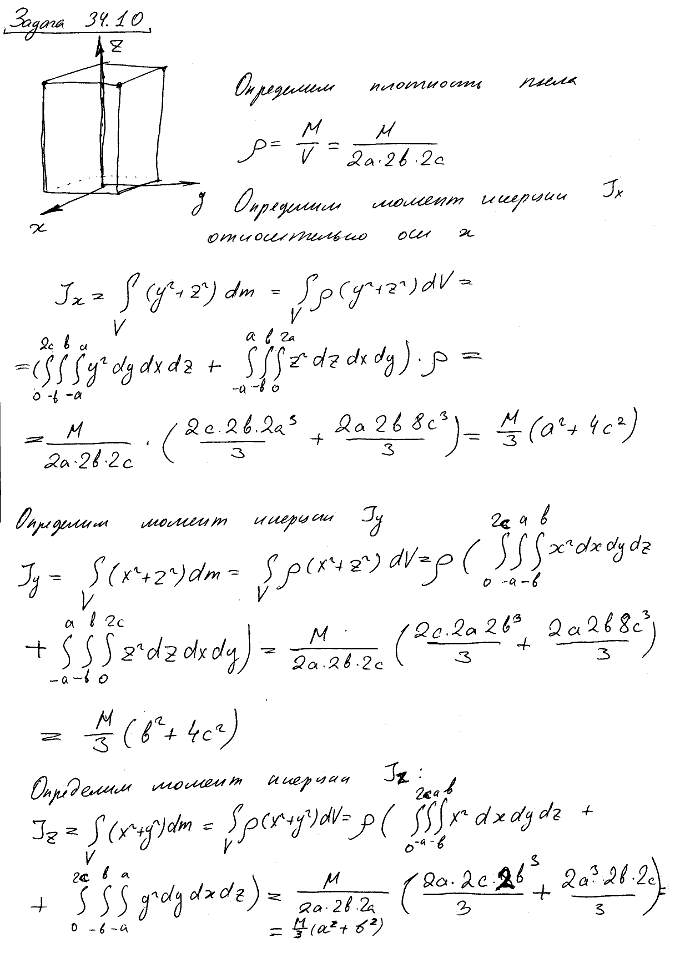 Задача 34.10
z
y
x
Определим плотность тела
ρ = M/V = M/(2a·2b·2c)
Определим момент инерции Jx
относительно оси x
Jx = ∫_V (y²+z²) dm = ∫_V ρ(y²+z²) dV =
= (∫_0^{2c} ∫_{-b}^{b} ∫_{-a}^{a} y² dy dx dz + ∫_{-a}^{a} ∫_{-b}^{b} ∫_0^{2a} z² dz dx dy)·ρ =
= M/(2a·2b·2c) · (2c·2b·2a³/3 + 2a 2b 8c³/3) = M/3 (a²+4c²)
Определим момент инерции Jy
Jy = ∫_V (x²+z²) dm = ∫_V ρ(x²+z²) dV = ρ (∫_0^{2c} ∫_{-a}^{a} ∫_{-b}^{b} x² dx dy dz
+ ∫_{-a}^{a} ∫_{-b}^{b} ∫_0^{2c} z² dz dx dy) = M/(2a·2b·2c) (2c·2a 2b³/3 + 2a 2b 8c³/3)
= M/3 (b²+4c²)
Определим момент инерции Jz:
Jz = ∫_V (x²+y²) dm = ∫_V ρ(x²+y²) dV = ρ (∫_0^{2c} ∫_{-a}^{a} ∫_{-b}^{b} x² dx dy dz +
+ ∫_0^{2c} ∫_{-b}^{b} ∫_{-a}^{a} y² dy dx dz) = M/(2a·2b·2a) (2a·2c·2b³/3 + 2a³·2b·2c/3) =
= M/3 (a²+b²)